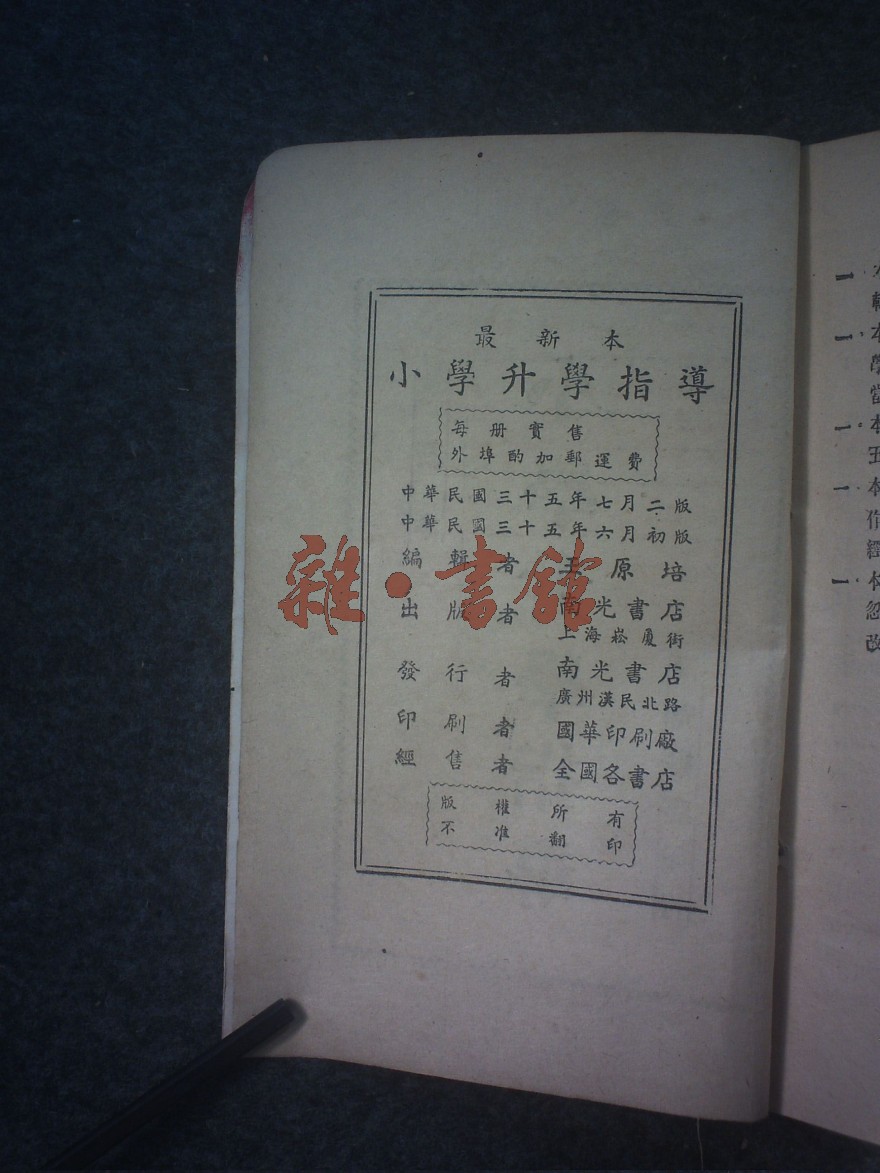 最新本
小學升學指導
每册實售
外埠酌加郵運費
中華民國三十五年七月二版
中華民國三十五年六月初版
編輯者 王原培
出版者 南光書店
上海崧厦街
發行者 南光書店
廣州漢民北路
印刷者 國華印刷廠
經售者 全國各書店
版權所有
不准翻印
雜·書館